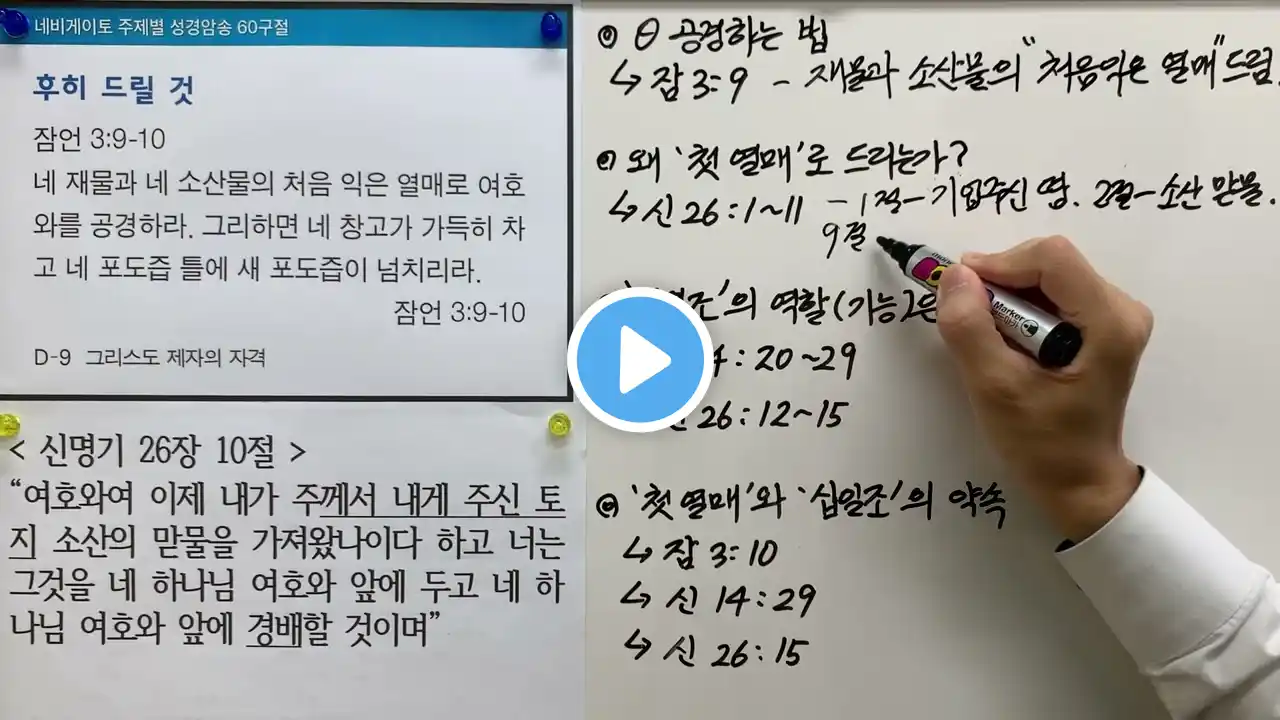 네비게이토 주제별 성경암송 60구절
후히 드릴 것
잠언 3:9-10
네 재물과 네 소산물의 처음 익은 열매로 여호
와를 공경하라. 그리하면 네 창고가 가득히 차
고 네 포도즙 틀에 새 포도즙이 넘치리라.
잠언 3:9-10
D-9 그리스도 제자의 자격
< 신명기 26장 10절 >
“여호와여 이제 내가 주께서 내게 주신 토
지 소산의 맏물을 가져왔나이다 하고 너는
그것을 네 하나님 여호와 앞에 두고 네 하
나님 여호와 앞에 경배할 것이며”
공경하는 법
↳ 잠 3:9 - 재물과 소산물의 "처음익은 열매" 드림.
왜 '첫 열매'로 드리는가?
↳ 신 26:1~11 - 1절-기업주신 땅. 2절-소산 맏물.
9절
조'의 역할(기능)은
4:20~29
26:12~15
'첫 열매'와 '십일조'의 약속
↳ 잠 3:10
↳ 신 14:29
↳ 신 26:15
Marker